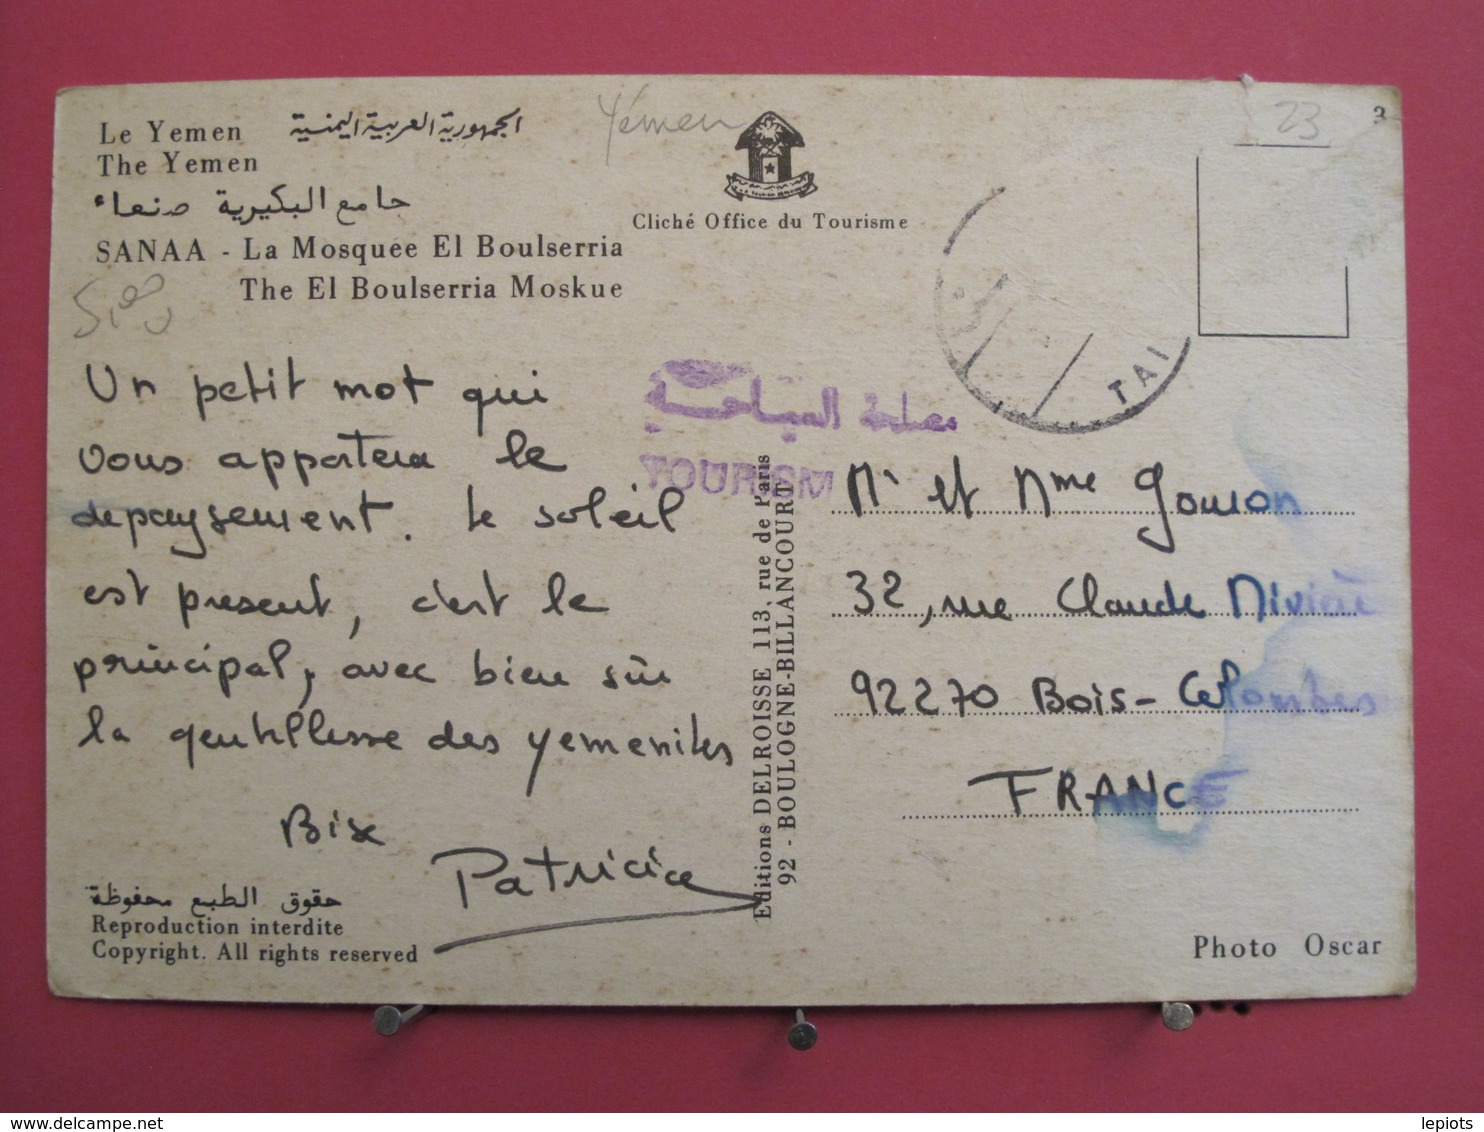 Le Yemen الجمهورية العربية اليمنية
The Yemen
جامع البكيرية صنعاء
SANAA - La Mosquée El Boulserria
The El Boulserria Moskue
Yémen
Cliché Office du Tourisme
23
3
TAI
مصلحة السياحة
TOURISM
Un petit mot qui
vous apportera le
depaysement. Le soleil
est present, c'est le
principal, avec bien sûr
la gentillesse des yemenites
Bise
Patricia
حقوق الطبع محفوظة
Reproduction interdite
Copyright. All rights reserved
Editions DELROISSE 113, rue de Paris
92 - BOULOGNE-BILLANCOURT
Mr et Mme
32, rue Claude
92270 Bois-Colombes
FRANCE
Photo Oscar
lepiots